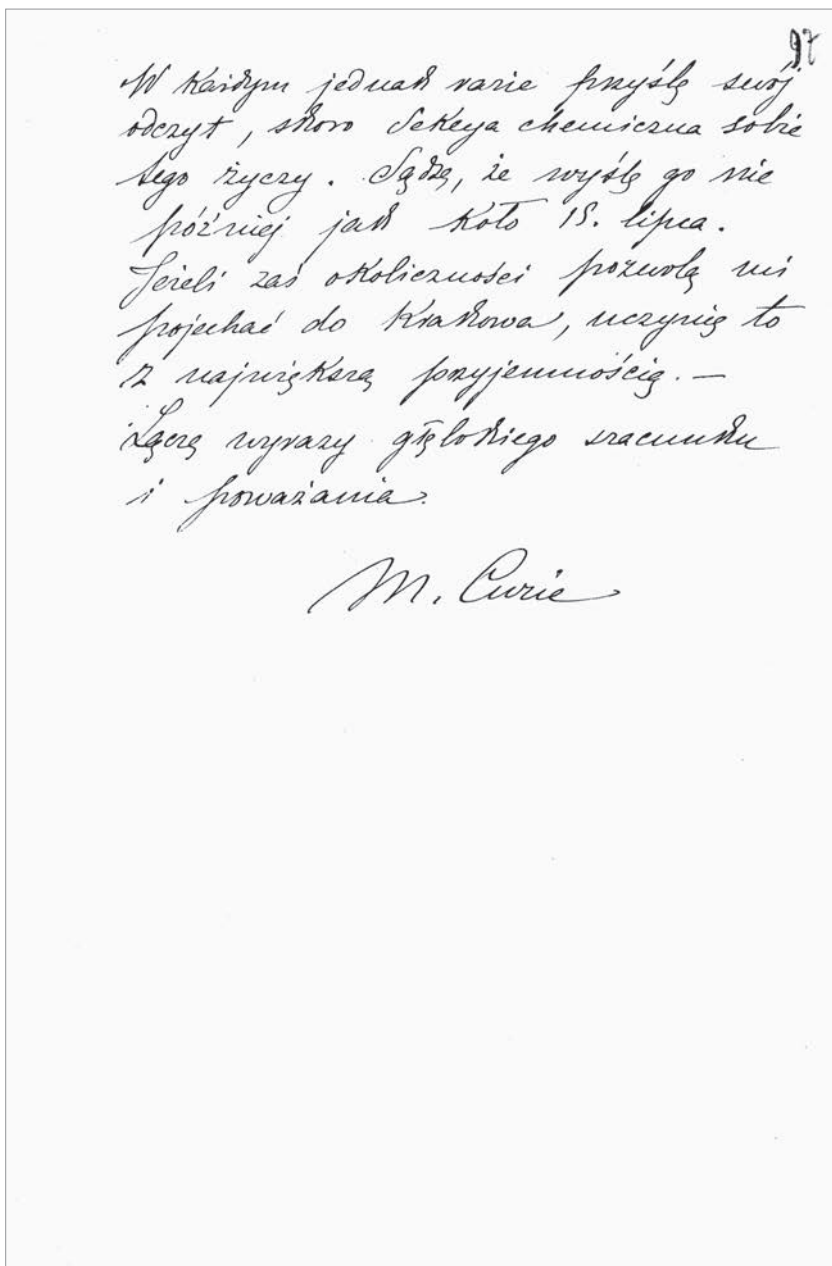 97
W każdym jednak razie przyślę swój
odczyt, skoro Sekcya chemiczna sobie
tego życzy. Sądzę, że wyślę go nie
później jak koło 15. lipca.
Jeżeli zaś okoliczności pozwolą mi
pojechać do Krakowa, uczynię to
z największą przyjemnością. —
Łączę wyrazy głębokiego szacunku
i poważania.
M. Curie